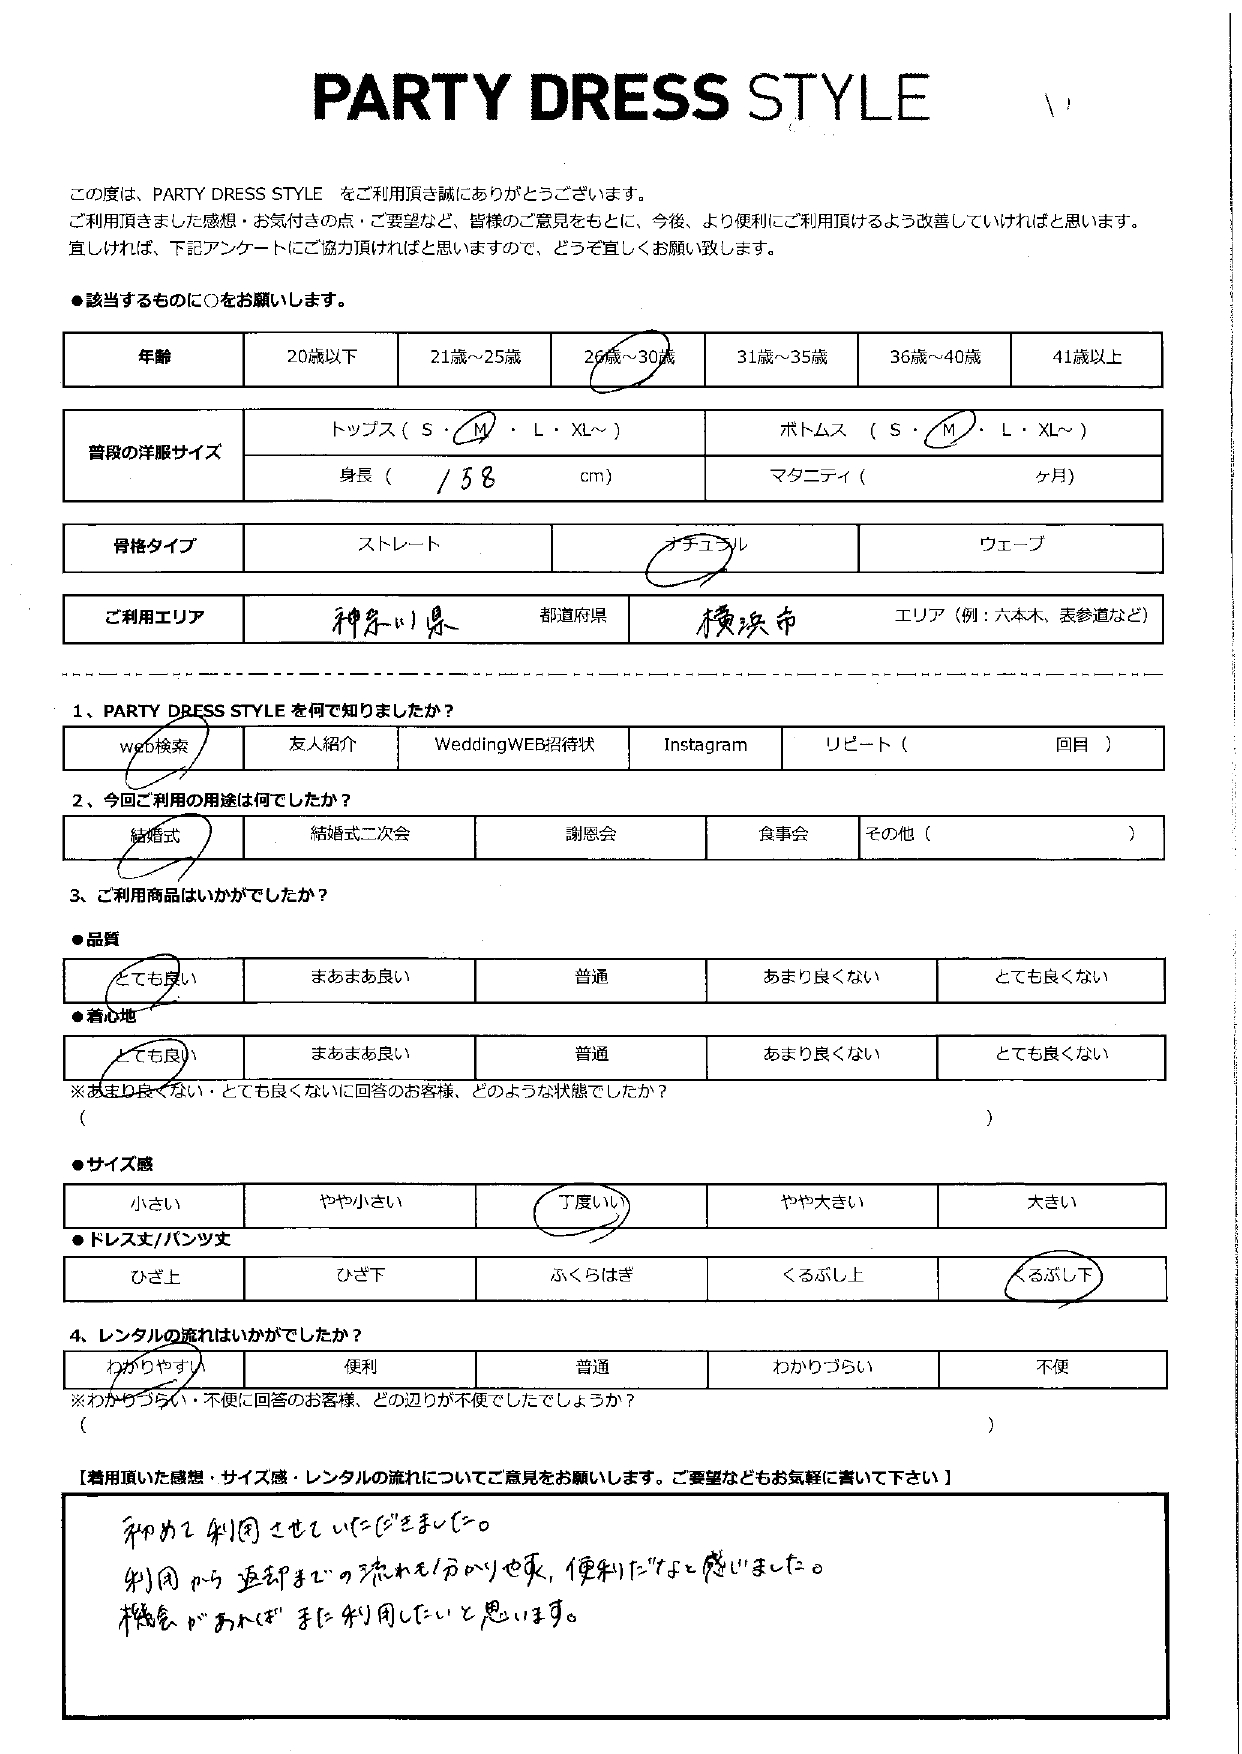 PARTY DRESS STYLE
この度は、PARTY DRESS STYLE をご利用頂き誠にありがとうございます。
ご利用頂きました感想・お気付きの点・ご要望など、皆様のご意見をもとに、今後、より便利にご利用頂けるよう改善していければと思います。
宜しければ、下記アンケートにご協力頂ければと思いますので、どうぞ宜しくお願い致します。
●該当するものに○をお願いします。
年齢 20歳以下 21歳～25歳 26歳～30歳 31歳～35歳 36歳～40歳 41歳以上
普段の洋服サイズ トップス ( S ・ M ・ L ・ XL～ ) ボトムス ( S ・ M ・ L ・ XL～ )
身長 ( 158 cm) マタニティ ( ヶ月)
骨格タイプ ストレート ナチュラル ウェーブ
ご利用エリア 神奈川県 都道府県 横浜市 エリア（例：六本木、表参道など）
1、PARTY DRESS STYLE を何で知りましたか？
web検索 友人紹介 WeddingWEB招待状 Instagram リピート ( 回目 )
2、今回ご利用の用途は何でしたか？
結婚式 結婚式二次会 謝恩会 食事会 その他 ( )
3、ご利用商品はいかがでしたか？
●品質
とても良い まあまあ良い 普通 あまり良くない とても良くない
●着心地
とても良い まあまあ良い 普通 あまり良くない とても良くない
※あまり良くない・とても良くないに回答のお客様、どのような状態でしたか？
( )
●サイズ感
小さい やや小さい 丁度いい やや大きい 大きい
●ドレス丈/パンツ丈
ひざ上 ひざ下 ふくらはぎ くるぶし上 くるぶし下
4、レンタルの流れはいかがでしたか？
わかりやすい 便利 普通 わかりづらい 不便
※わかりづらい・不便に回答のお客様、どの辺りが不便でしたでしょうか？
( )
【着用頂いた感想・サイズ感・レンタルの流れについてご意見をお願いします。ご要望などもお気軽に書いて下さい 】
初めて利用させていただきました。
利用から返却までの流れも分かりやすく、便利だなと感じました。
機会があればまた利用したいと思います。